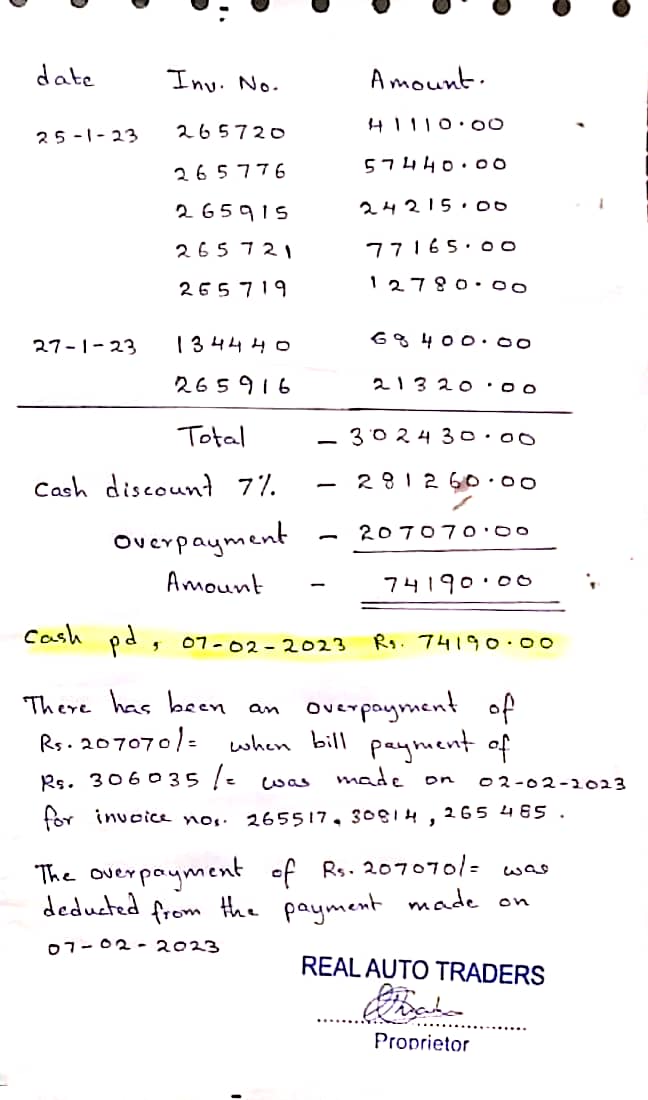 date Inv. No. Amount.
25-1-23 265720 41110.00
265776 57440.00
265915 24215.00
265721 77165.00
265719 12780.00
27-1-23 134440 68400.00
265916 21320.00
Total - 302430.00
Cash discount 7% - 281260.00
Overpayment - 207070.00
Amount - 74190.00
Cash pd, 07-02-2023 Rs. 74190.00
There has been an overpayment of
Rs. 207070/= when bill payment of
Rs. 306035/= was made on 02-02-2023
for invoice nos. 265517, 30814, 265485.
The overpayment of Rs. 207070/= was
deducted from the payment made on
07-02-2023
REAL AUTO TRADERS
Proprietor